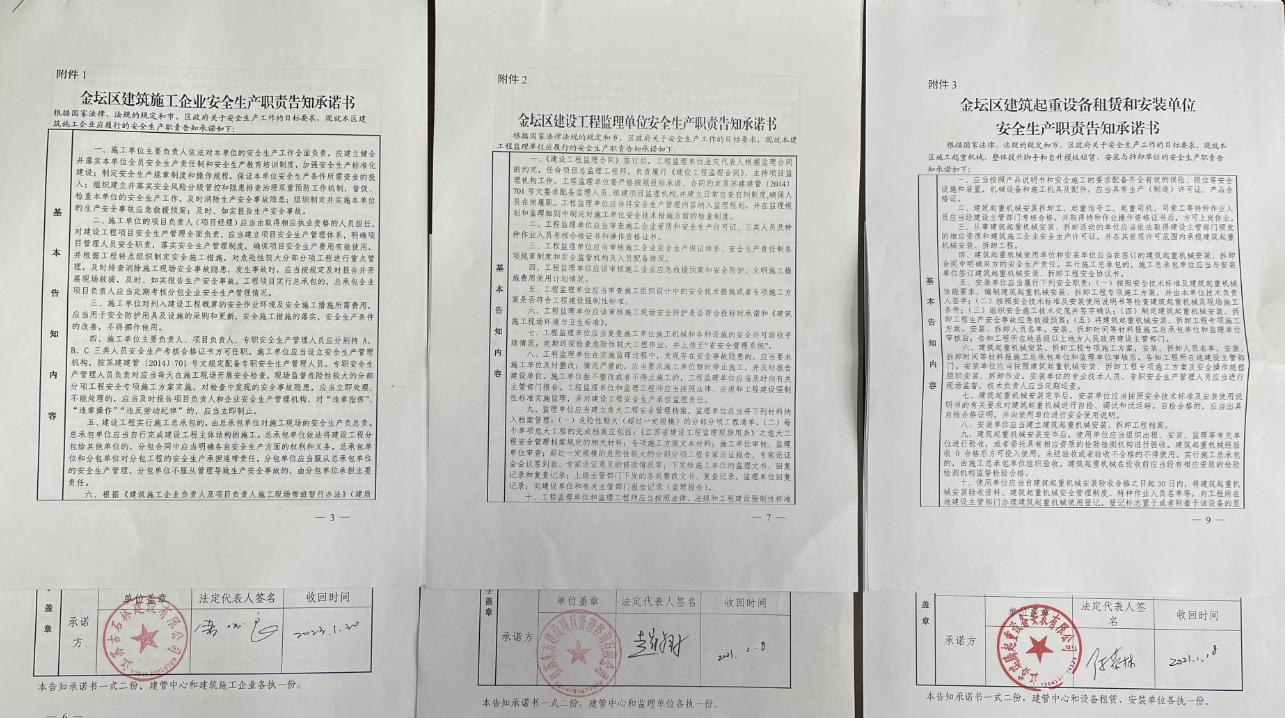 附件 1
金坛区建筑施工企业安全生产职责告知承诺书
根据国家法律、法规的规定和市、区政府关于安全生产工作的目标要求，现就本区建
筑施工企业应履行的安全生产职责告知承诺如下：
基本告知内容
一、施工单位主要负责人依法对本单位的安全生产工作全面负责，应建立健全
并落实本单位全员安全生产责任制和安全生产教育培训制度，加强安全生产标准化
建设；制定安全生产规章制度和操作规程，保证本单位安全生产条件所需资金的投
入；组织建立并落实安全风险分级管控和隐患排查治理双重预防工作机制，督促、
检查本单位的安全生产工作，及时消除生产安全事故隐患；组织制定并实施本单位
的生产安全事故应急救援预案；及时、如实报告生产安全事故。
二、施工单位的项目负责人（项目经理）应当由取得相应执业资格的人员担任，
对建设工程项目安全生产管理全面负责，应当建立项目安全生产管理体系，明确项
目管理人员安全职责，落实安全生产管理制度，确保项目安全生产费用有效使用，
并根据工程特点组织制定安全施工措施，对危险性较大分部分项工程进行重点管
理，及时排查消除施工现场安全事故隐患，发生事故时，应当按规定及时报告并开
展现场救援，及时、如实报告生产安全事故。工程项目实行总承包的，总承包企业
项目负责人应当定期考核分包企业安全生产管理情况。
三、施工单位对列入建设工程概算的安全作业环境及安全施工措施所需费用，
应当用于安全防护用具及设施的采购和更新、安全施工措施的落实、安全生产条件
的改善，不得挪作他用。
四、施工单位主要负责人、项目负责人、专职安全生产管理人员应分别持 A、
B、C 三类人员安全生产考核合格证书方可任职。施工单位应当设立安全生产管理
机构，按苏建建管〔2014〕701 号文规定配备专职安全生产管理人员。专职安全生
产管理人员负责对应当每天在施工现场开展安全检查，现场监督危险性较大的分部
分项工程安全专项施工方案实施。对检查中发现的安全事故隐患，应当立即处理；
不能处理的，应当及时报告项目负责人和企业安全生产管理机构，对“违章指挥”、
“违章操作”“违反劳动纪律”的，应当立即制止。
五、建设工程实行施工总承包的，由总承包单位对施工现场的安全生产负总责。
总承包单位应当自行完成建设工程主体结构的施工。总承包单位依法将建设工程分
包给其他单位的，分包合同中应当明确各自安全生产方面的权利和义务。总承包单
位和分包单位对分包工程的安全生产承担连带责任。分包单位应当服从总承包单位
的安全生产管理，分包单位不服从管理导致生产安全事故的，由分包单位承担主要
责任。
六、根据《建筑施工企业负责人及项目负责人施工现场带班暂行办法》（建质
— 3 —
盖章
承诺方
单位盖章
法定代表人签名
收回时间
2023.1.20
本告知承诺书一式二份，建管中心和建筑施工企业各执一份。
— 6 —
附件 2
金坛区建设工程监理单位安全生产职责告知承诺书
根据国家法律法规的规定和市、区政府关于安全生产工作的目标要求，现就本建
工程监理单位应履行的安全生产职责告知承诺如下：
基本告知内容
一、《建设工程监理合同》签订后，工程监理单位法定代表人根据监理合同
的约定，任命项目总监理工程师，负责履行《建设工程监理合同》，主持项目监
理机构工作。工程监理单位要严格按照投标承诺、合同约定及苏建建管〔2014〕
701 号文要求配备监理人员，组建项目监理机构，并建立日常自查自纠制度，确保人
员在岗履职。工程监理单位应当将安全生产管理内容纳入监理规划，并在监理规
划和监理细则中制定对施工单位安全技术措施方面的检查制度。
二、工程监理单位应当审查施工企业资质和安全生产许可证、三类人员及特
种作业人员考核合格证书和操作资格证书。
三、工程监理单位应当审核施工企业安全生产保证体系、安全生产责任制各
项规章制度和安全监管机构及人员配备情况。
四、工程监理单位应该审核施工企业应急救援预案和安全防护、文明施工措
施费用使用计划情况。
五、工程监理单位应当审查施工组织设计中的安全技术措施或者专项施工方
案是否符合工程建设强制性标准。
六、工程监理单位应该审核施工现场安全防护是否符合投标时承诺和《建筑
施工现场环境与卫生标准》。
七、工程监理单位应当复查施工单位施工机械和各种设施的安全许可验收手
续情况，定期巡视检查危险性较大工程作业，并上传至“省安全管理系统”。
八、工程监理单位在实施监理过程中，发现存在安全事故隐患的，应当要求
施工单位及时整改；情况严重的，应当要求施工单位暂时停止施工，并及时报告
建设单位。施工单位拒不整改或者不停止施工的，工程监理单位应当及时向有关
主管部门报告。工程监理单位和监理工程师应当按照法律、法规和工程建设强制
性标准实施监理，并对建设工程安全生产承担监理责任。
九、监理单位应当建立危大工程安全管理档案，监理单位应当将下列材料纳
入档案管理：（一）危险性较大（超过一定规模）的分部分项工程清单，（二）每
个单项危大工程的完成档案应包括：《江苏省建设工程监理现场用表》之危大工
程安全管理档案规定的相关材料；专项施工方案文本材料；施工单位审核、监理
单位审查；超过一定规模的危险性较大的分部分项工程专家论证报告、专家论证
会会议签到表、专家论证意见的修改情况等；下发给施工单位的监理文书、回复
记录和复查记录；上级主管部门下发的各类整改文书、复查记录，监理单位回复
记录；向建设单位和有关主管部门报告记录（监理报告）。
十、工程监理单位和监理工程师应当按照法律、法规和工程建设强制性标准
— 7 —
盖章
承诺方
单位盖章
法定代表人签名
收回时间
本告知承诺书一式二份，建管中心和监理单位各执一份。
附件 3
金坛区建筑起重设备租赁和安装单位
安全生产职责告知承诺书
根据国家法律、法规的规定和市、区政府关于安全生产工作的目标要求，现就本
区施工起重机械、整体提升脚手和自升模板租赁、安装与拆卸单位的安全生产职责告
知承诺如下：
基本告知内容
一、应当按照产品说明书和安全施工的要求配备齐全有效的保险、限位等安全
设施和装置，机械设备和施工机具及配件，应当具有生产（制造）许可证、产品合
格证。
二、建筑起重机械安装拆卸工、起重信号工、起重司机、司索工等特种作业人
员应当经建设主管部门考核合格，并取得特种作业操作资格证书后，方可上岗作业。
三、从事建筑起重机械安装、拆卸活动的单位应当依法取得建设主管部门颁发
的相应资质和建筑施工企业安全生产许可证，并在其资质许可范围内承揽建筑起重
机械安装、拆卸工程。
四、建筑起重机械使用单位和安装单位应当在签订的建筑起重机械安装、拆卸
合同中明确双方的安全生产责任。实行施工总承包的，施工总承包单位应当与安装
单位签订建筑起重机械安装、拆卸工程安全协议书。
五、安装单位应当履行下列安全职责：（一）按照安全技术标准及建筑起重机械
性能要求，编制建筑起重机械安装、拆卸工程专项施工方案，并由本单位技术负责
人签字；（二）按照安全技术标准及安装使用说明书等检查建筑起重机械及现场施工
条件；（三）组织安全施工技术交底并签字确认；（四）制定建筑起重机械安装、拆
卸工程生产安全事故应急救援预案；（五）将建筑起重机械安装、拆卸工程专项施工
方案，安装、拆卸人员名单，安装、拆卸时间等材料报施工总承包单位和监理单位
审核后，告知工程所在地县级以上地方人民政府建设主管部门。
六、建筑起重机械安装、拆卸工程专项施工方案，安装、拆卸人员名单，安装、
拆卸时间等材料报施工总承包单位和监理单位审核后，告知工程所在地建设主管部
门。安装单位应当按照建筑起重机械安装、拆卸工程专项施工方案及安全操作规程
组织安装、拆卸作业。安装单位的专业技术人员、专职安全生产管理人员应当进行
现场监督，技术负责人应当定期巡查。
七、建筑起重机械安装完毕后，安装单位应当按照安全技术标准及安装使用说
明书的有关要求对建筑起重机械进行自检、调试和试运转。自检合格的，应当出具
自检合格证明，并向使用单位进行安全使用说明。
八、安装单位应当建立建筑起重机械安装、拆卸工程档案。
九、建筑起重机械安装完毕后，使用单位应当组织出租、安装、监理等有关单
位进行验收，或者委托具有相应资质的检验检测机构进行验收。建筑起重机械经验
收合格后方可投入使用，未经验收或者验收不合格的不得使用。实行施工总承包
的，由施工总承包单位组织验收。建筑起重机械在验收前应当经有相应资质的检验
检测机构监督检验合格。
十、使用单位应当自建筑起重机械安装验收合格之日起 30 日内，将建筑起重机
械安装验收资料、建筑起重机械安全管理制度、特种作业人员名单等，向工程所在
地建设主管部门办理建筑起重机械使用登记。登记标志置于或者附着于该设备的显
— 9 —
盖章
承诺方
单位盖章
法定代表人签名
收回时间
2023.1.18
本告知承诺书一式二份，建管中心和设备租赁、安装单位各执一份。